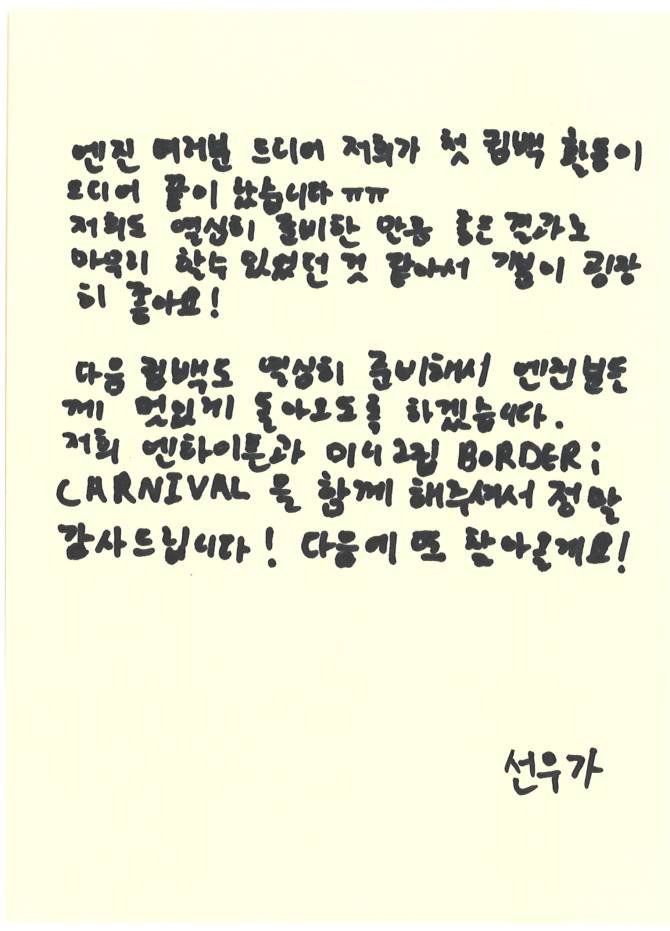 엔진 여러분 드디어 저희가 첫 컴백 활동이
드디어 끝이 났습니다 ㅠㅠ
저희도 열심히 준비한 만큼 좋은 결과로
마무리 할수 있었던 것 같아서 기분이 굉장
히 좋아요!
다음 컴백도 열심히 준비해서 엔진분들
께 멋있게 돌아오도록 하겠습니다.
저희 엔하이픈과 미니2집 BORDER;
CARNIVAL 을 함께 해주셔서 정말
감사드립니다! 다음에 또 찾아올게요!
선우가